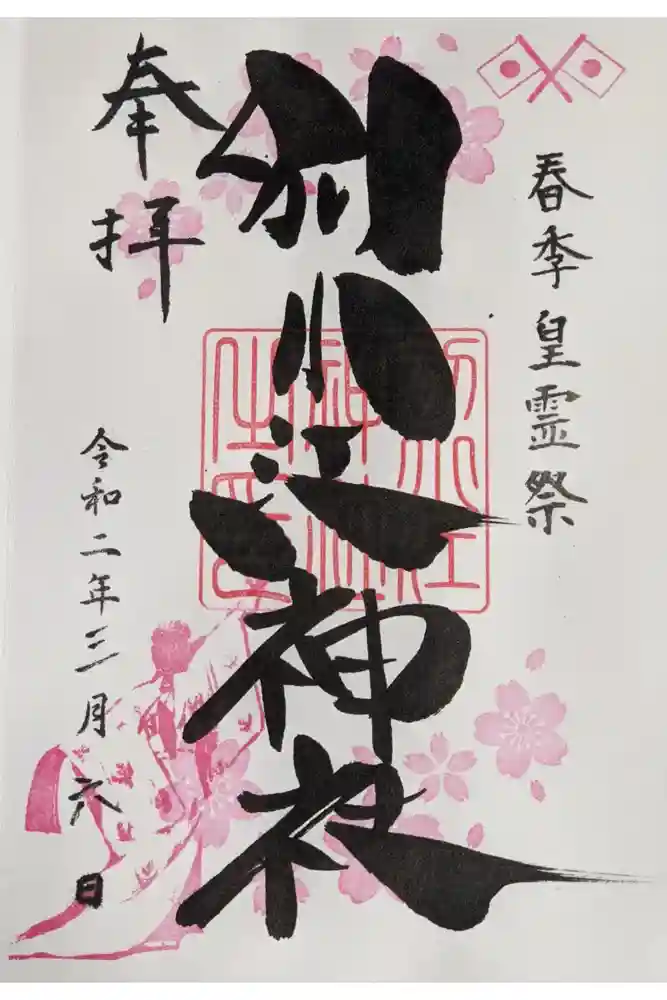 春季皇霊祭
別小江神社
別小江
神社
之印
奉拝
令和二年三月六日